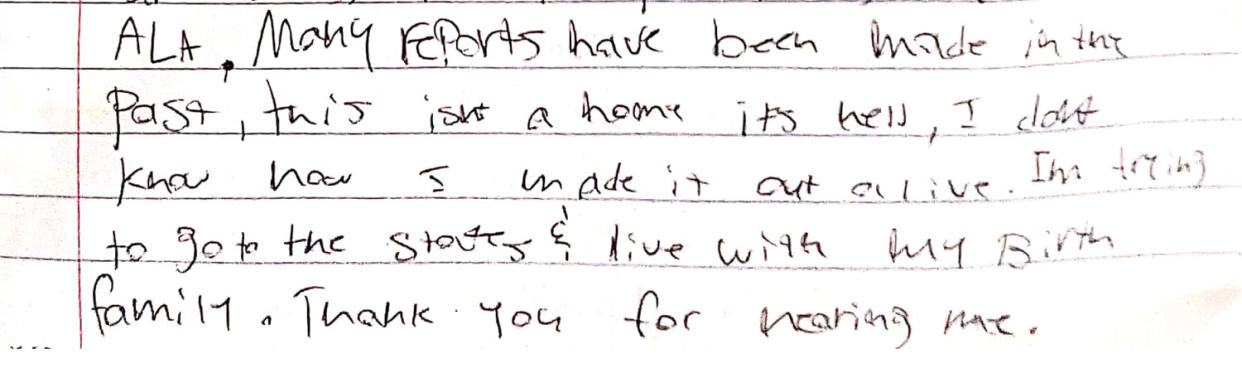 ALA. Many reports have been made in the
Past, this isnt a home its hell, I dont
know how I made it out alive. Im trying
to go to the states & live with my Birth
family. Thank you for hearing me.